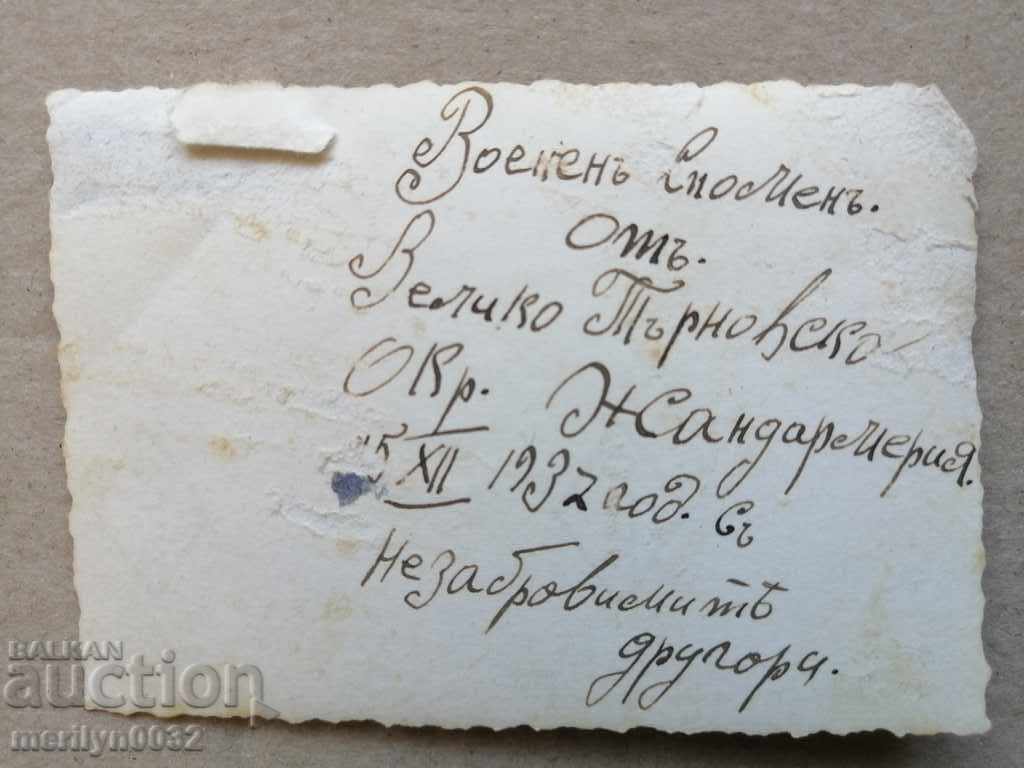 Воененъ Спомѐнъ.
отъ.
Велико Търновско
Окр. Жандармерия.
15 XII 1937 год. съ
незабровимитѣ
другори.
BALKAN
auction
merilyn0032